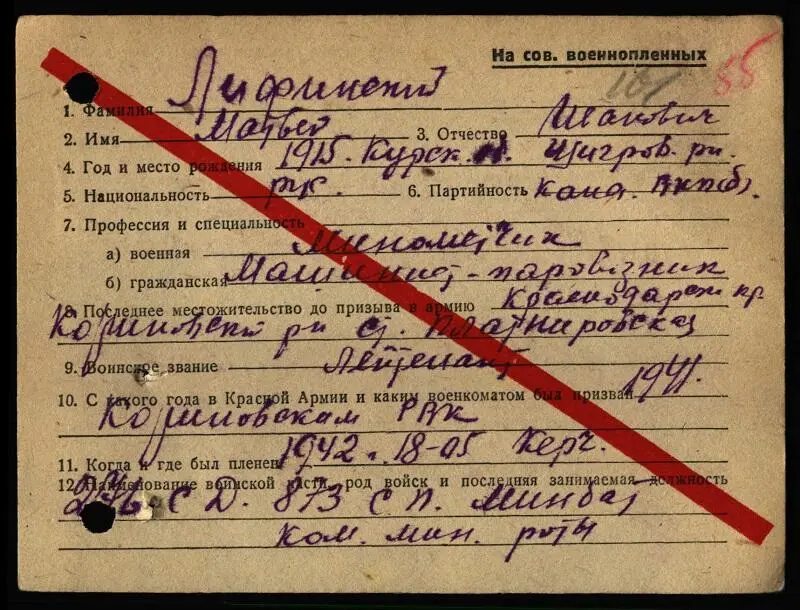 На сов. военнопленных
55
1. Фамилия Лифинский
2. Имя Матвей 3. Отчество Исакович
4. Год и место рождения 1915. Курск. Щигров. рн.
5. Национальность рус. 6. Партийность Канд. ВКП(б).
7. Профессия и специальность
а) военная Минометчик
б) гражданская Машинист-паровозник
8. Последнее местожительство до призыва в армию Краснодарск кр.
рн ст. Платнировская
9. Воинское звание Лейтенант
10. С какого года в Красной Армии и каким военкоматом был призван 1941.
РВК
11. Когда и где был пленен 1942 г. 18-05 Керч.
12. Наименование воинской части, род войск и последняя занимаемая должность
276 СД. 873 СП. Минбат
Ком. мин. роты